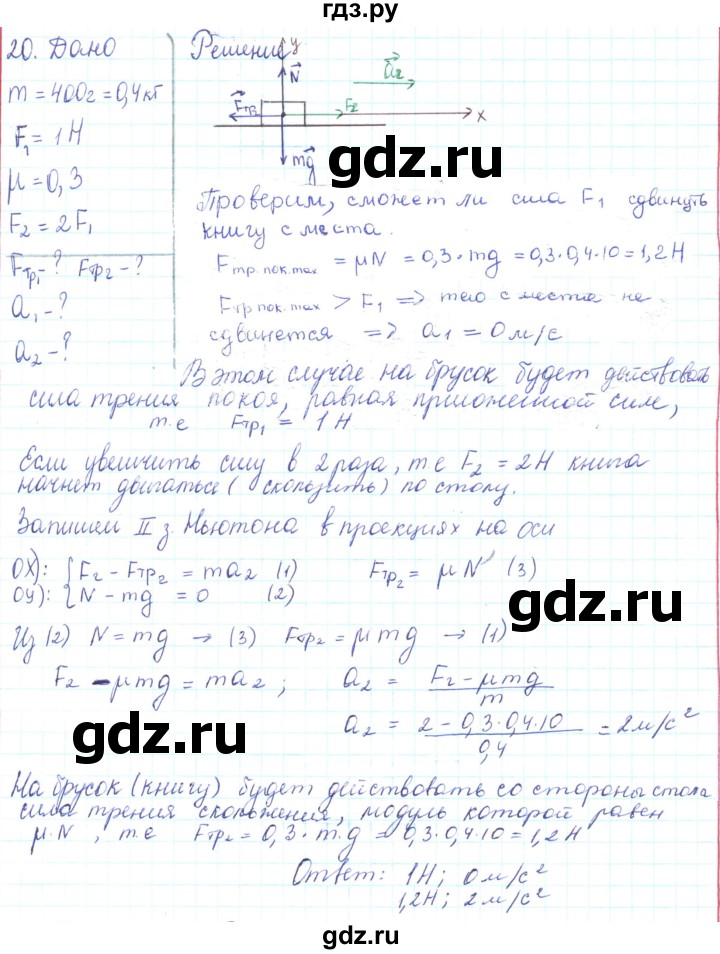 гдз.ру
20. Дано
m = 400г = 0,4кг
F₁ = 1Н
μ = 0,3
F₂ = 2F₁
Fтр₁ - ? Fтр₂ - ?
a₁ - ?
a₂ - ?
Решение
y
N
a₂
Fтр₂
F₂
x
mg
gdz.ru
Проверим, сможет ли сила F₁ сдвинуть
книгу с места.
Fтр.пок.max = μN = 0,3·mg = 0,3·0,4·10 = 1,2Н
Fтр пок.max > F₁ => тело с места не
сдвинется => a₁ = 0м/с
В этом случае на брусок будет действовать
сила трения покоя, равная приложенной силе,
т.е Fтр₁ = 1Н
gdz.ru
Если увеличить силу в 2 раза, т.е F₂ = 2Н книга
начнет двигаться (скользить) по столу.
Запишем II з. Ньютона в проекциях на оси
OX): { F₂ - Fтр₂ = ma₂ (1) Fтр₂ = μN (3)
OY): { N - mg = 0 (2)
gdz.ru
Из (2) N = mg → (3) Fтр₂ = μmg → (1)
F₂ - μmg = ma₂; a₂ = F₂ - μmg
m
a₂ = 2 - 0,3·0,4·10 = 2м/с²
0,4
gdz.ru
На брусок (книгу) будет действовать со стороны стола
сила трения скольжения, модуль которой равен
μ·N, т.е Fтр₂ = 0,3·m·g = 0,3·0,4·10 = 1,2Н
Ответ: 1Н; 0м/с²
1,2Н; 2м/с²
gdz.ru
gdz.ru